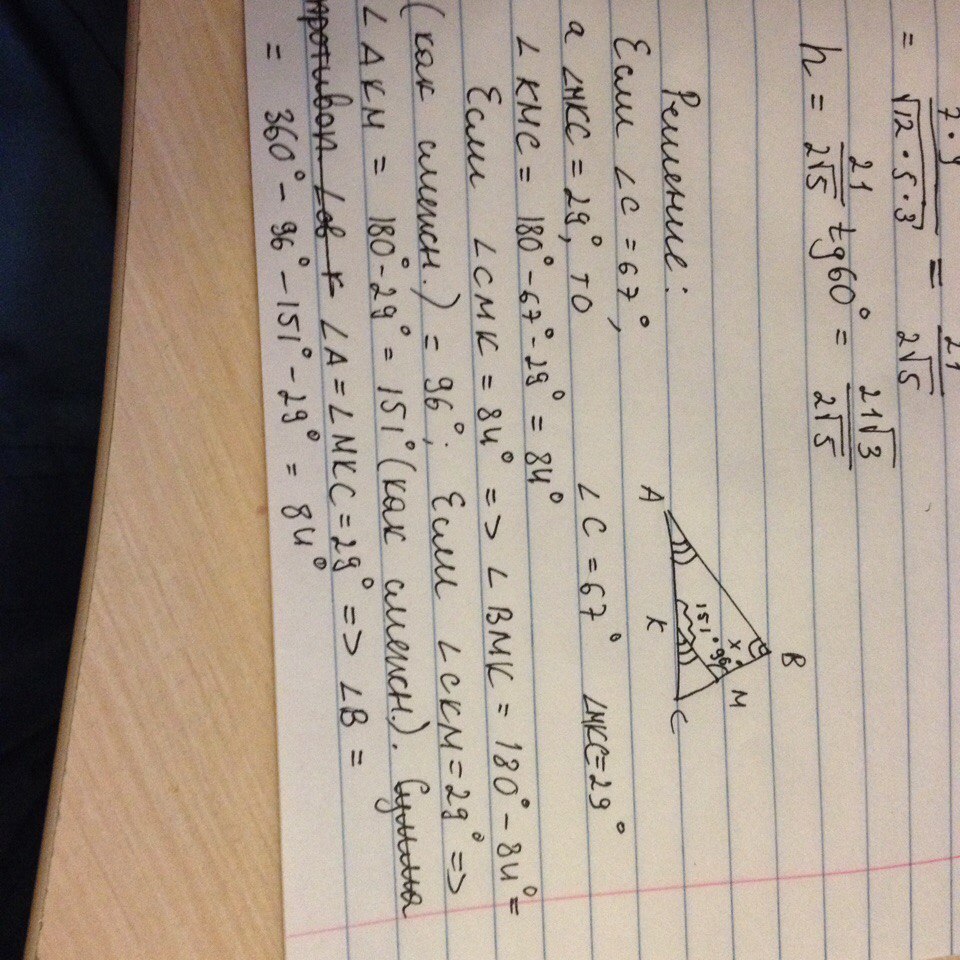 = 7·9 / √12·5·3 = 21 / 2√5
h = 21 / 2√5 tg60° = 21√3 / 2√5
Решение:
A B C K M x 151° 96°
Если ∠C = 67°,
∠C = 67° ∠MKC = 29°
а ∠MKC = 29°, то
∠KMC = 180° - 67° - 29° = 84°
Если ∠CMK = 84° => ∠BMK = 180° - 84° =
(как смежн.) = 96°; Если ∠CKM = 29° =>
∠AKM = 180° - 29° = 151° (как смежн.). Сумма
против ∠ов к ∠A = ∠MKC = 29° => ∠B =
= 360° - 96° - 151° - 29° = 84°